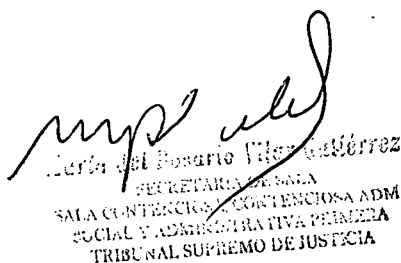 María del Rosario Vilar Gutiérrez
SECRETARIA DE SALA
SALA CONTENCIOSA Y CONTENCIOSA ADM
SOCIAL Y ADMINISTRATIVA PRIMERA
TRIBUNAL SUPREMO DE JUSTICIA